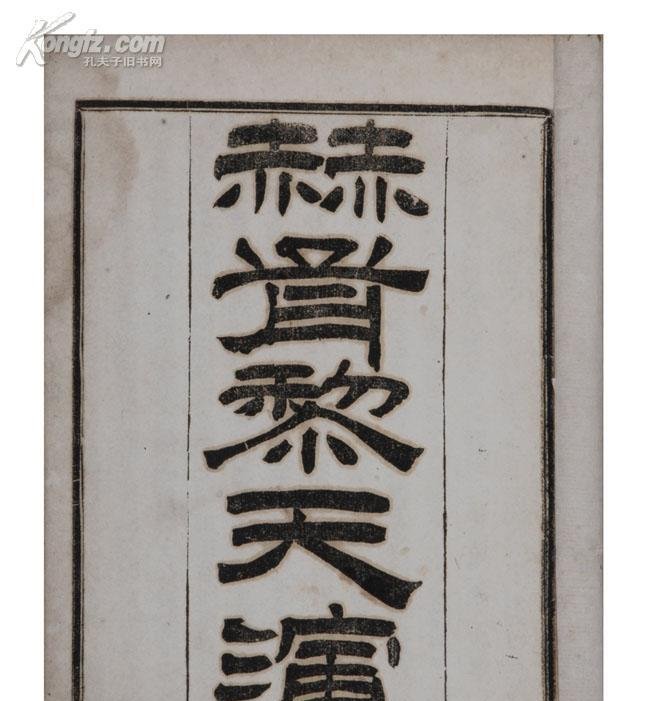 Kongfz.com
孔夫子旧书网
赫胥黎天演